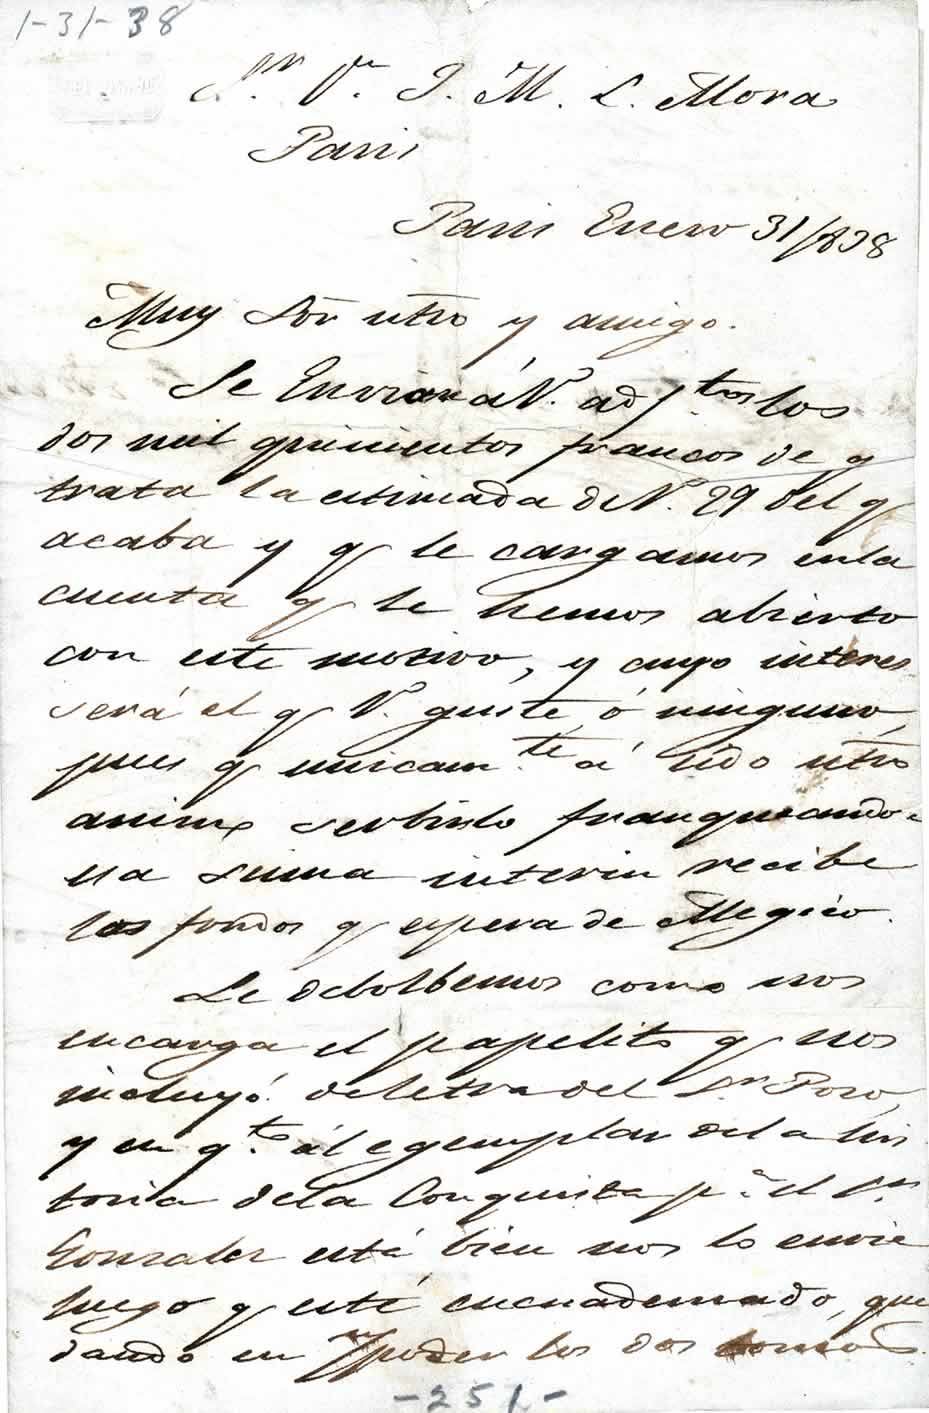 1-31-38
Sr. Dn. J. M. L. Mora
Paris
Paris Enero 31/838
Muy Sõr ntro y amigo.
Se Envian á V. adjtos. los
dos mil quinientos francos de q
trata la estimada de V. 29 del q
acaba y q le cargamos en la
cuenta q le hemos abierto
con este motivo, y cuyo interes
será el q V. guste, ó ninguno,
pues q unicamte. á sido ntro
animo serbirlo franqueando-
esa suma interin recibe
los fondos q espera de Megico.
Le debolbemos como nos
encarga el papelito q nos
incluyó de letra del Sr. Poso,
y en qto. al egemplar de la his
toria de la Conquista pa. el Sr
Gonzalez está bien nos lo envie
luego q esté encuadernado, que
dando en poder los dos tomos
-251-